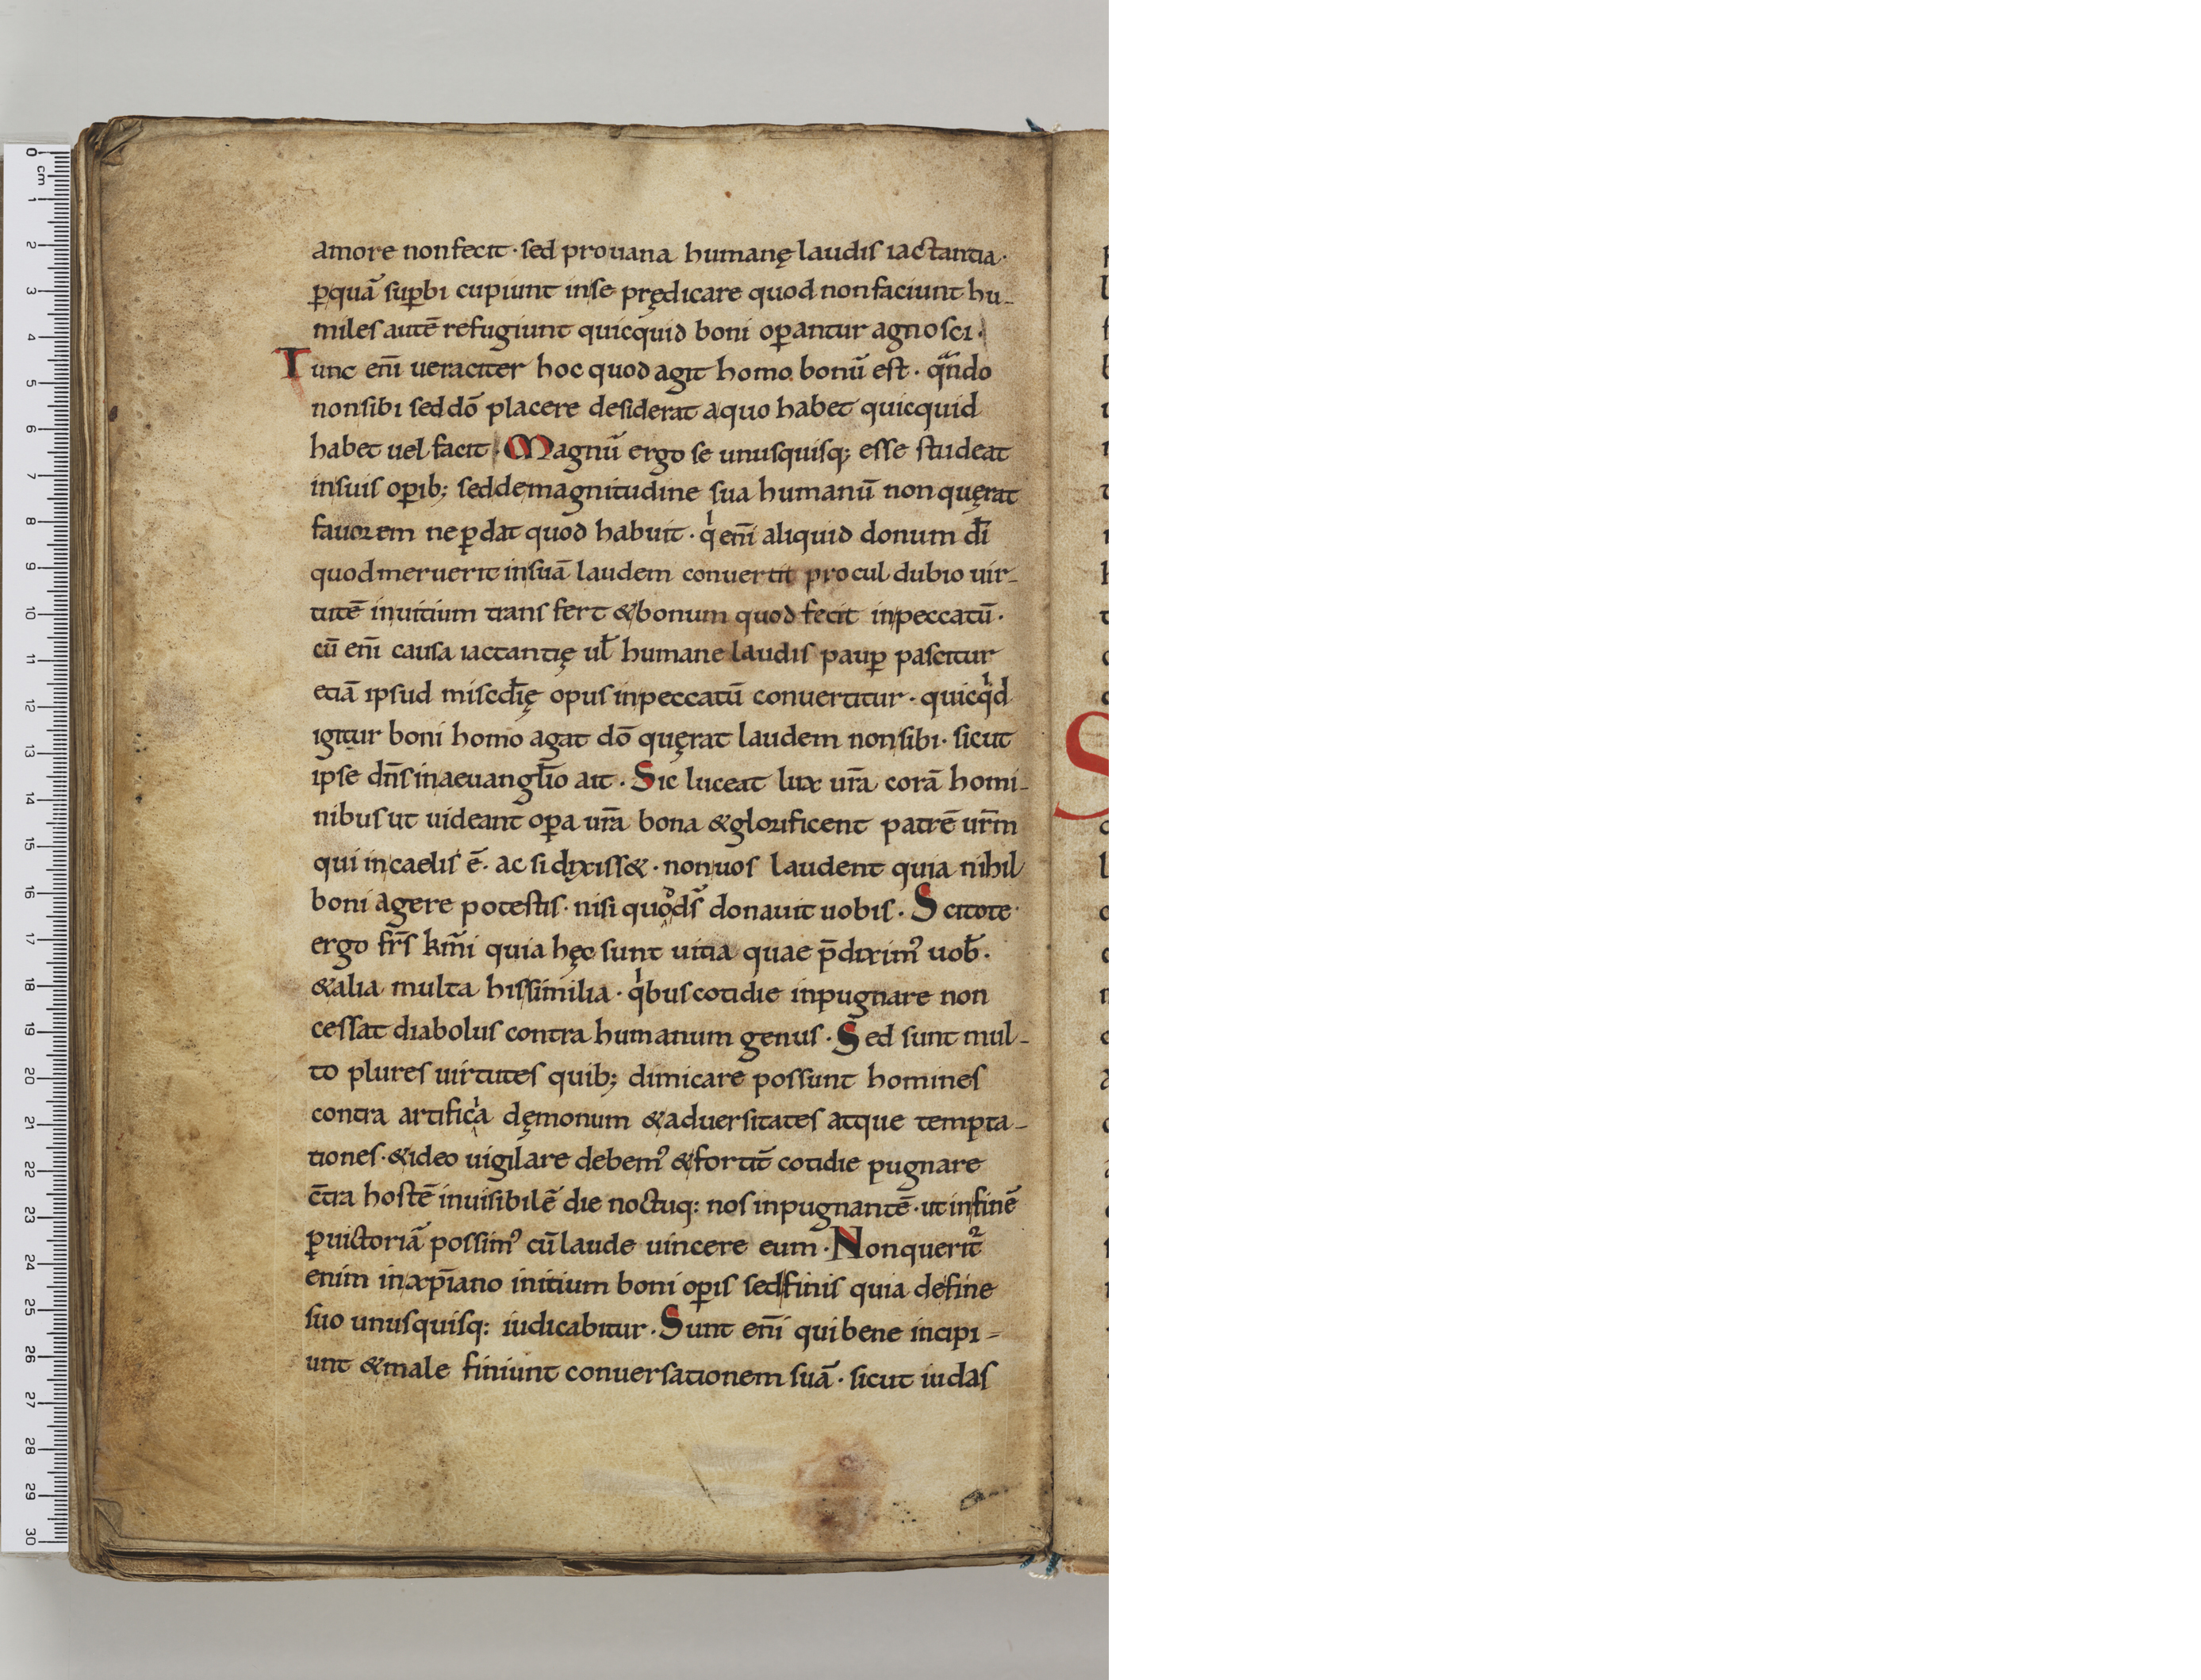 amore non fecit · sed pro uana humanę laudis iactantia ·
ꝑquā suꝑbi cupiunt in se prędicare quod non faciunt hu-
miles autē refugiunt quicquid boni oꝑantur agnosci ·
Tunc eni̅ ueraciter hoc quod agit homo bonū est · qn̄do
non sibi sed dō placere desiderat a quo habet quicquid
habet uel facit · Magnū ergo se unusquisq; esse studeat
in suis oꝑib; sed de magnitudine sua humanū non quęrat
fauorem ne ꝑdat quod habuit · qͥ eni̅ aliquid donum di̅
quod meruerit in suā laudem conuertit procul dubio uir-
tutē in uitium transfert & bonum quod fecit in peccatū ·
cū eni̅ causa iactantię ul̅ humane laudis pauꝑ pascitur
etiā ipsud miscdi̅ę opus in peccatū conuertitur · quicqͥd
igitur boni homo agat dō quęrat laudem non sibi · sicut
ipse dn̅s in aeuangl̅io ait · Sic luceat lux ur̅a corā homi-
nibus ut uideant oꝑa ur̅a bona & glorificent patrē ur̅m
qui in caelis ē · ac si dixiss& · non uos laudent quia nihil
boni agere potestis · nisi quod ds̅ donauit uobis · Scitote
ergo fr̅s km̅i quia hęc sunt uitia quae p̅diximꝰ uob̅ ·
& alia multa his similia · qͥbus cotidie inpugnare non
cessat diabolus contra humanum genus · Sed sunt mul-
to plures uirtutes quib; dimicare possunt homines
contra artificia dęmonum & aduersitates atque tempta-
tiones · & ideo uigilare debemꝰ & fortit̅ cotidie pugnare
c̅tra hostē inuisibilē die noctuq: nos inpugnantē · ut in finē
ꝑ uictoriā possimꝰ cū laude uincere eum · Non querit᷑
enim in xp̅iano initium boni oꝑis sed finis quia de fine
suo unusquisq: iudicabitur · Sunt eni̅ qui bene incipi-
unt & male finiunt conuersationem suā · sicut iudas